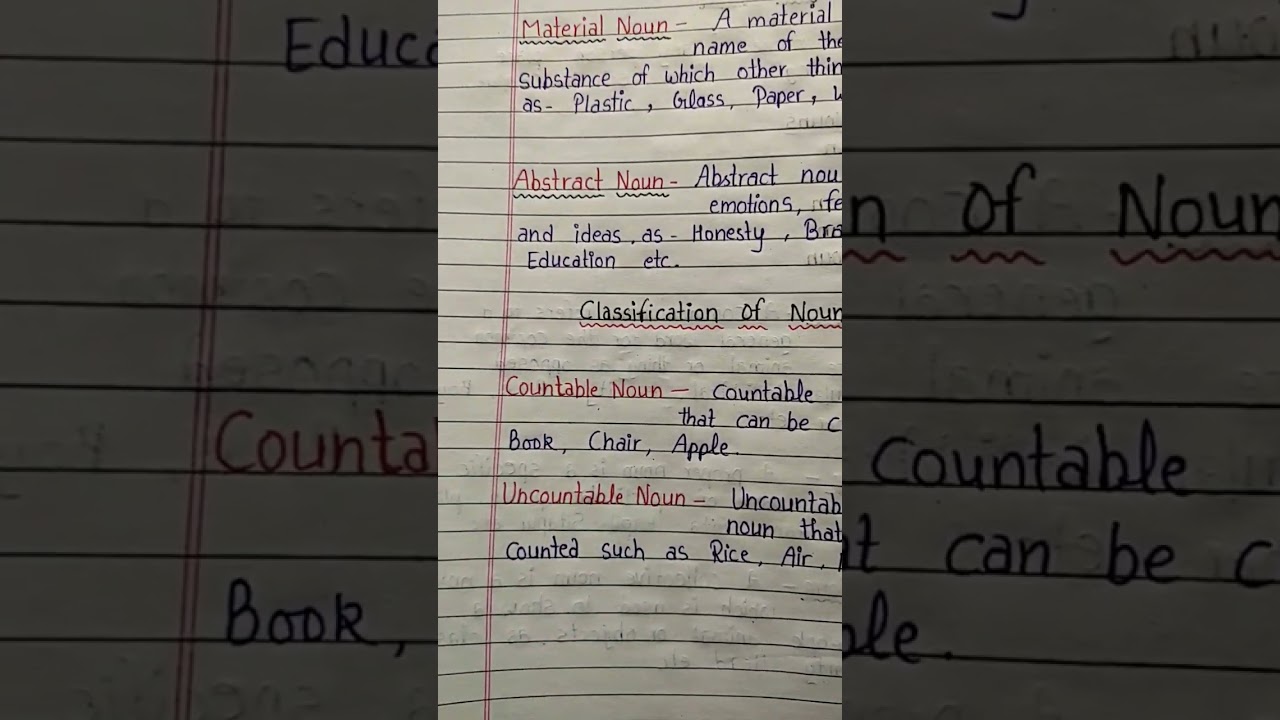 Material Noun - A material
name of the
substance of which other thin
as - Plastic, Glass, Paper, W
Abstract Noun - Abstract nou
emotions, fe
and ideas, as - Honesty, Bra
Education etc.
Classification Of Noun
Countable Noun - Countable
that can be c
Book, Chair, Apple.
Uncountable Noun - Uncountab
noun that
Counted such as Rice, Air,
Educa
Counta
Book,
n Of Noun
Countable
t can be c
ple.